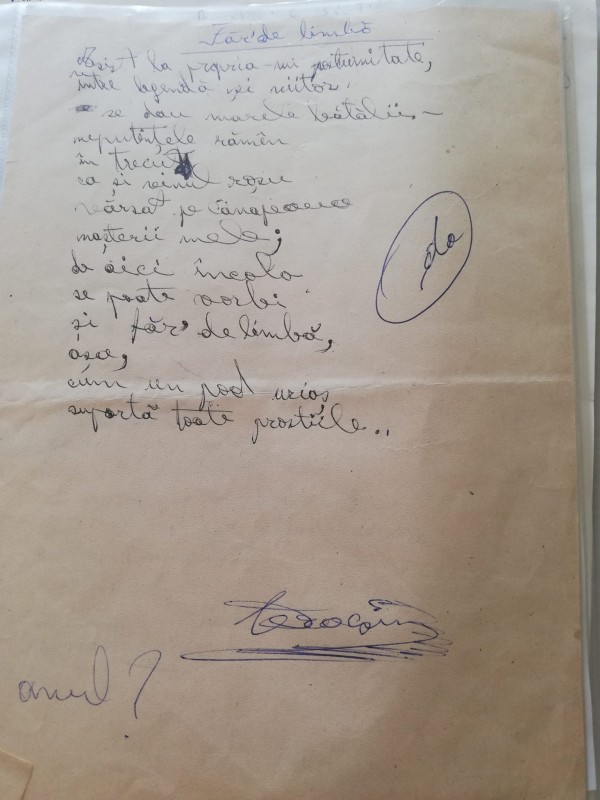 Făr'de limbă
Asist la propria-mi postumitate,
între legendă și viitor
se dau marele bătălii —
neputințele rămân
în trecut
ca și vinul roșu
vărsat pe canapeaua
mele;
de aici încolo
se poate vorbi
și făr' de limbă,
așa,
cum un pod uriaș
suportă toate prostiile..
da
anul?